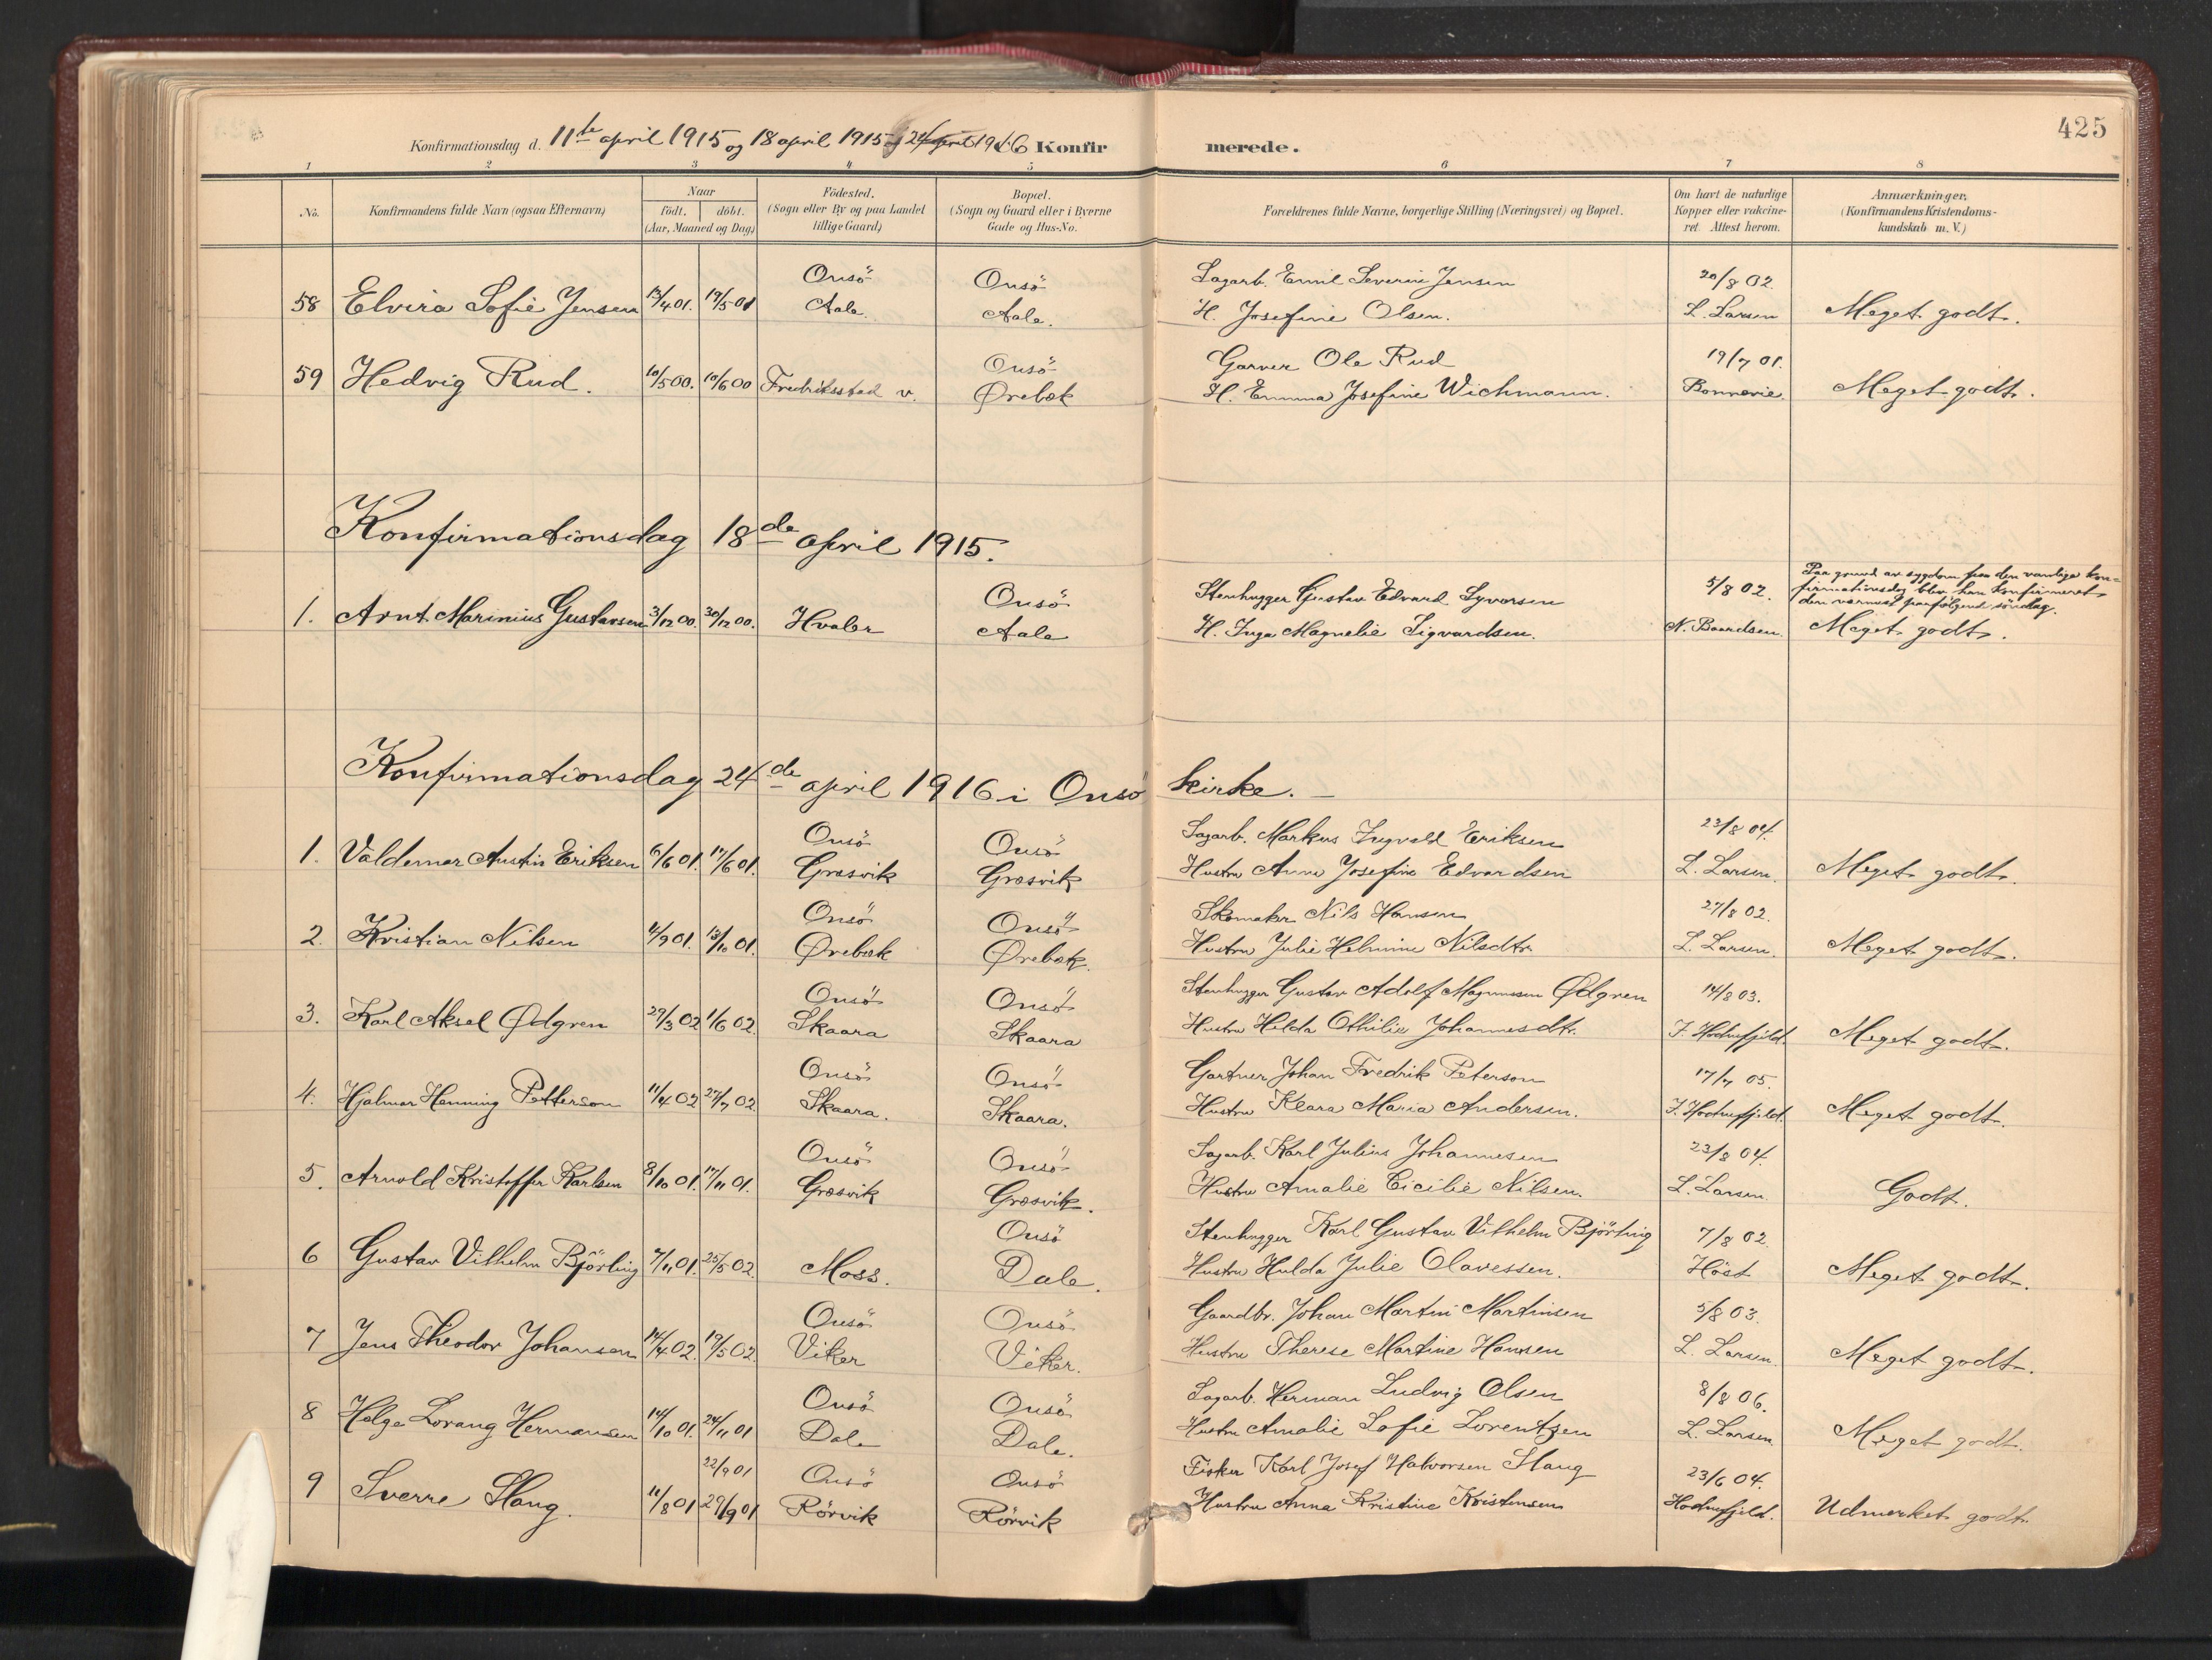 425
Konfirmationsdag d. 11te april 1915 og 18 april 1915 og 24 april 1916 Konfir merede.
1 2 3 4 5 6 7 8
No. Konfirmandens fulde Navn (ogsaa Efternavn) Naar födt. döbt. (Aar, Maaned og Dag) Födested. (Sogn eller By og paa Landet tillige Gaard) Bopæl. (Sogn og Gaard eller i Byerne Gade og Hus-No. Forældrenes fulde Navne, borgerlige Stilling (Næringsvei) og Bopæl. Om havt de naturlige Kopper eller vakcineret. Attest herom. Anmærkninger, (Konfirmandens Kristendomskundskab m. V.)
Onsö Onsö Sagarb. Emil Severin Jensen 20/8 02.
58 Elvira Sofie Jensen 13/4 01. 19/5 01 Aale. Aale. H. Josefine Olsen. L. Larsen Meget godt.
Onsö Garver Ole Rud 19/7 01.
59 Hedvig Rud. 10/5 00. 10/6 00 Fredriksstad v. Ørebæk H. Emma Josefine Wichmann. Bonnevie. Meget godt.
Konfirmationsdag 18de april 1915.
Onsö Stenhugger Gustav Edvard Syversen 5/8 02. Paa grund av sygdom paa den vanlige konfirmationsdag blev han konfirmeret den nærmest paafölgende söndag.
1. Arnt Marinius Gustavsen 3/12 00. 30/12 00. Hvaler Aale H. Inga Magnelie Sigvardsen. N. Baardsen. Meget godt.
Konfirmationsdag 24de april 1916 i Onsö kirke. —
Onsö Onsö Sagarb. Markus Ingvald Eriksen 23/8 04.
1. Valdemar Austin Eriksen 6/6 01. 17/6 01. Græsvik Græsvik Hustru Anne Josefine Edvardsen L. Larsen. Meget godt.
Onsö Onsö Skomaker Nils Hansen 27/8 02.
2. Kristian Nilsen 4/9 01. 13/10 01. Ørebæk Ørebæk. Hustru Julie Helmine Nilsdtr. L. Larsen. Meget godt.
Onsö Onsö Stenhugger Gustav Adolf Magnussen Ødgren 14/8 03.
3. Karl Aksel Ødgren 29/3 02 1/6 02. Skaara Skaara Hustru Hilda Othilie Johannesdtr. J. Hodnefjeld. Meget godt.
Onsö Onsö Gartner Johan Fredrik Peterson 17/7 05.
4. Hjalmar Henning Petterson 11/4 02 27/7 02 Skaara. Skaara. Hustru Klara Maria Andersen. J. Hodnefjeld. Meget godt.
Onsö Onsö Sagarb. Karl Julius Johannesen 23/8 04.
5. Arnold Kristoffer Karlsen 8/10 01. 17/11 01. Græsvik Græsvik. Hustru Amalie Cicilie Nilsen. L. Larsen. Godt.
Onsö Stenhugger Karl Gustav Vilhelm Björling 7/8 02.
6 Gustav Vilhelm Björling 7/11 01. 25/5 02. Moss. Dale. Hustru Hulda Julie Olavessen. Höst Meget godt.
Onsö Onsö Gaardbr. Johan Martin Martinsen 5/8 03.
7 Jens Theodor Johansen 14/4 02. 19/5 02. Viker Viker. Hustru Therese Martine Hansen L. Larsen. Meget godt.
Onsö Onsö Sagarb. Herman Ludvig Olsen 8/8 06.
8 Helge Lorang Hermansen 14/10 01. 24/11 01 Dale Dale. Hustru Amalie Sofie Lorentzen L. Larsen. Meget godt.
22/9 01 Onsö Onsö Fisker Karl Josef Halvorsen Slang 23/6 04.
9 Sverre Slang. 11/8 01 29/9 01 Rörvik Rörvik Hustru Anna Kristine Kristensen Hodnefjeld. Udmerket godt.